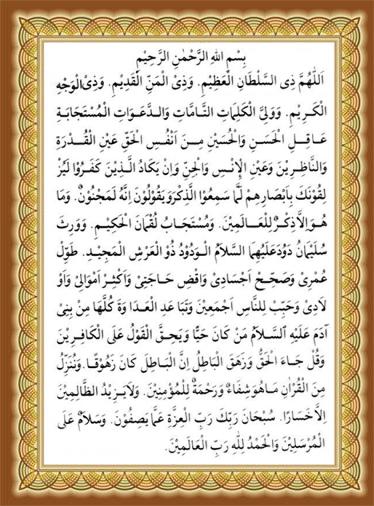 بِسْمِ اللهِ الرَّحْمٰنِ الرَّحِيْمِ
اَللّٰهُمَّ ذِى السُّلْطَانِ الْعَظِيْمِ. وَذِىْ الْمَنِّ الْقَدِيْمِ. وَذِىْ الْوَجْهِ
الْكَرِيْمِ. وَوَلِيَّ الْكَلِمَاتِ التَّآمَّاتِ وَالدَّعَوَاتِ الْمُسْتَجَابَةِ
عَاقِلِ الْحَسَنِ وَالْحُسَيْنِ مِنْ اَنْفُسِ الْحَقِّ عَيْنِ الْقُدْرَةِ
وَالنَّاظِرِيْنَ وَعَيْنِ الْاِنْسِ وَالْجِنِّ وَاِنْ يَكَادُ الَّذِيْنَ كَفَرُوْا لَيُزْ
لِقُوْنَكَ بِاَبْصَارِهِمْ لَمَّا سَمِعُوْا الذِّكْرَ وَيَقُوْلُوْنَ اِنَّهُ لَمَجْنُوْنٌ. وَمَا
هُوَ اِلَّا ذِكْرٌ لِلْعَالَمِيْنَ. وَمُسْتَجَابُ لُقْمَانَ الْحَكِيْمِ. وَوَرِثَ
سُلَيْمَانُ دَوُدَ عَلَيْهِمَا السَّلَامُ الْوَدُوْدُ ذُو الْعَرْشِ الْمَجِيْدِ. طَوِّلْ
عُمْرِىْ وَصَحِّحْ اَجْسَادِىْ وَاقْضِ حَاجَتِىْ وَاَكْثِرْ اَمْوَالِىْ وَاَوْ
لَادِىْ وَحَبِّبْ لِلنَّاسِ اَجْمَعِيْنَ وَتَبَاعَدِ الْعَدَاوَةَ كُلَّهَا مِنْ بَنِىْ
آدَمَ عَلَيْهِ السَّلَامُ مَنْ كَانَ حَيًّا وَيَحِقَّ الْقَوْلُ عَلَى الْكَافِرِيْنَ
وَقُلْ جَاءَ الْحَقُّ وَزَهَقَ الْبَاطِلُ اِنَّ الْبَاطِلَ كَانَ زَهُوْقًا. وَنُنَزِّلُ
مِنَ الْقُرْاٰنِ مَا هُوَ شِفَاءٌ وَرَحْمَةٌ لِلْمُؤْمِنِيْنَ. وَلَا يَزِيْدُ الظَّالِمِيْنَ
اِلَّا خَسَارًا. سُبْحَانَ رَبِّكَ رَبِّ الْعِزَّةِ عَمَّا يَصِفُوْنَ. وَسَلَامٌ عَلَى
الْمُرْسَلِيْنَ وَالْحَمْدُ لِلّٰهِ رَبِّ الْعَالَمِيْنَ.